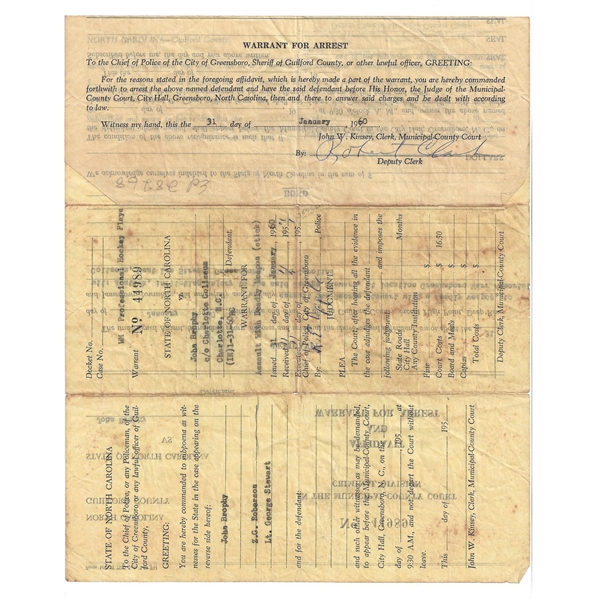 WARRANT FOR ARREST
To the Chief of Police of the City of Greensboro, Sheriff of Guilford County, or other lawful officer, GREETING:
For the reasons stated in the foregoing affidavit, which is hereby made a part of the warrant, you are hereby commanded
forthwith to arrest the above named defendant and have the said defendant before His Honor, the Judge of the Municipal-
County Court, City Hall, Greensboro, North Carolina, then and there to answer said charges and be dealt with according
to law.
Witness my hand, this the 31 day of January 1960
John W. Kinsey, Clerk, Municipal-County Court
By: Robert Clark
Deputy Clerk
Docket No.
Case No.
WM Professional Hockey Playe
Warrant No 44989
STATE OF NORTH CAROLINA
Vs
John Brophy
c/o Charlotte Coliseum
Charlotte, N.C.
Defendant,
WARRANT FOR
Assault With Deadly Weapon (stick)
Issued 31 day of January, 1960
Received day of 195
Executed day of 195
Chief of Police, City of Greensboro
By: Police
JUDGMENT
PLEA
The Court, after hearing all the evidence in
the case adjudges the defendant
and imposes the
following judgment:
State Roads Months
City Hall
Any County Institution
Fine $
Court Costs $ 16.50
Board and Meals $
Copies $
Total Costs $
Deputy Clerk, Municipal-County Court
STATE OF NORTH CAROLINA
To the Chief of Police or any Policeman, of the
City of Greensboro or any lawful officer of Guil-
ford County,
GREETING:
You are hereby commanded to subpoena as wit-
nesses for the State in the case appearing on the
reverse side hereof:
John Brophy
Z.G. Roberson
Lt. George Stewart
and for the defendant
and such other witnesses as may be demanded,
to appear before the Municipal-County Court,
City Hall, Greensboro, N. C., on the
day of 195 at
9:30 A.M., and not depart the Court without
leave.
This day of 195
John W. Kinsey, Clerk, Municipal-County Court